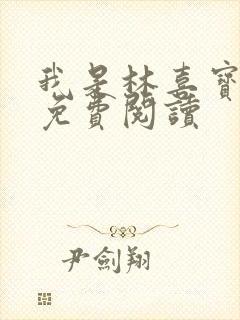 我是林喜寶
免費閱讀
尹劍翔